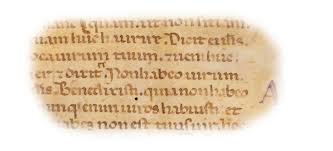 aquam ut non
niam huc haurire. Dicit ei ihs.
oca uirum tuum. ueni huc
er & dixit. Non habeo uirum.
ihs. Benedixisti. quia non habeo
A
enim uiros habuisti. et
abes non est tuus uir